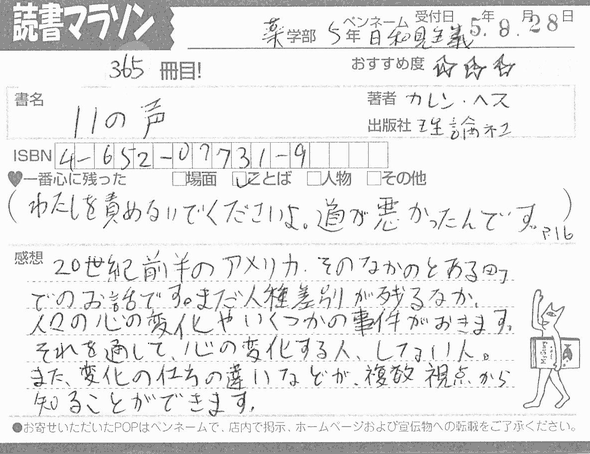 読書マラソン
薬学部 5年 ペンネーム 日和見主義 受付日 5年9月28日
365 冊目! おすすめ度 ☆☆☆
書名 11の声
著者 カレン・ヘス
出版社 理論社
ISBN 4-652-07731-9
♥一番心に残った □場面 ☑ことば □人物 □その他
(わたしを責めないでくださいよ。道が悪かったんです。P16)
感想 20世紀前半のアメリカ.そのなかのとある町
でのお話です。まだ人種差別が残るなか、
人々の心の変化やいくつかの事件がおきます。
それを通して、心の変化する人、しない人。
また、変化の仕方の違いなどが、複数視点から
知ることができます。
●お寄せいただいたPOPはペンネームで、店内で掲示、ホームページおよび宣伝物への転載をご了承ください。